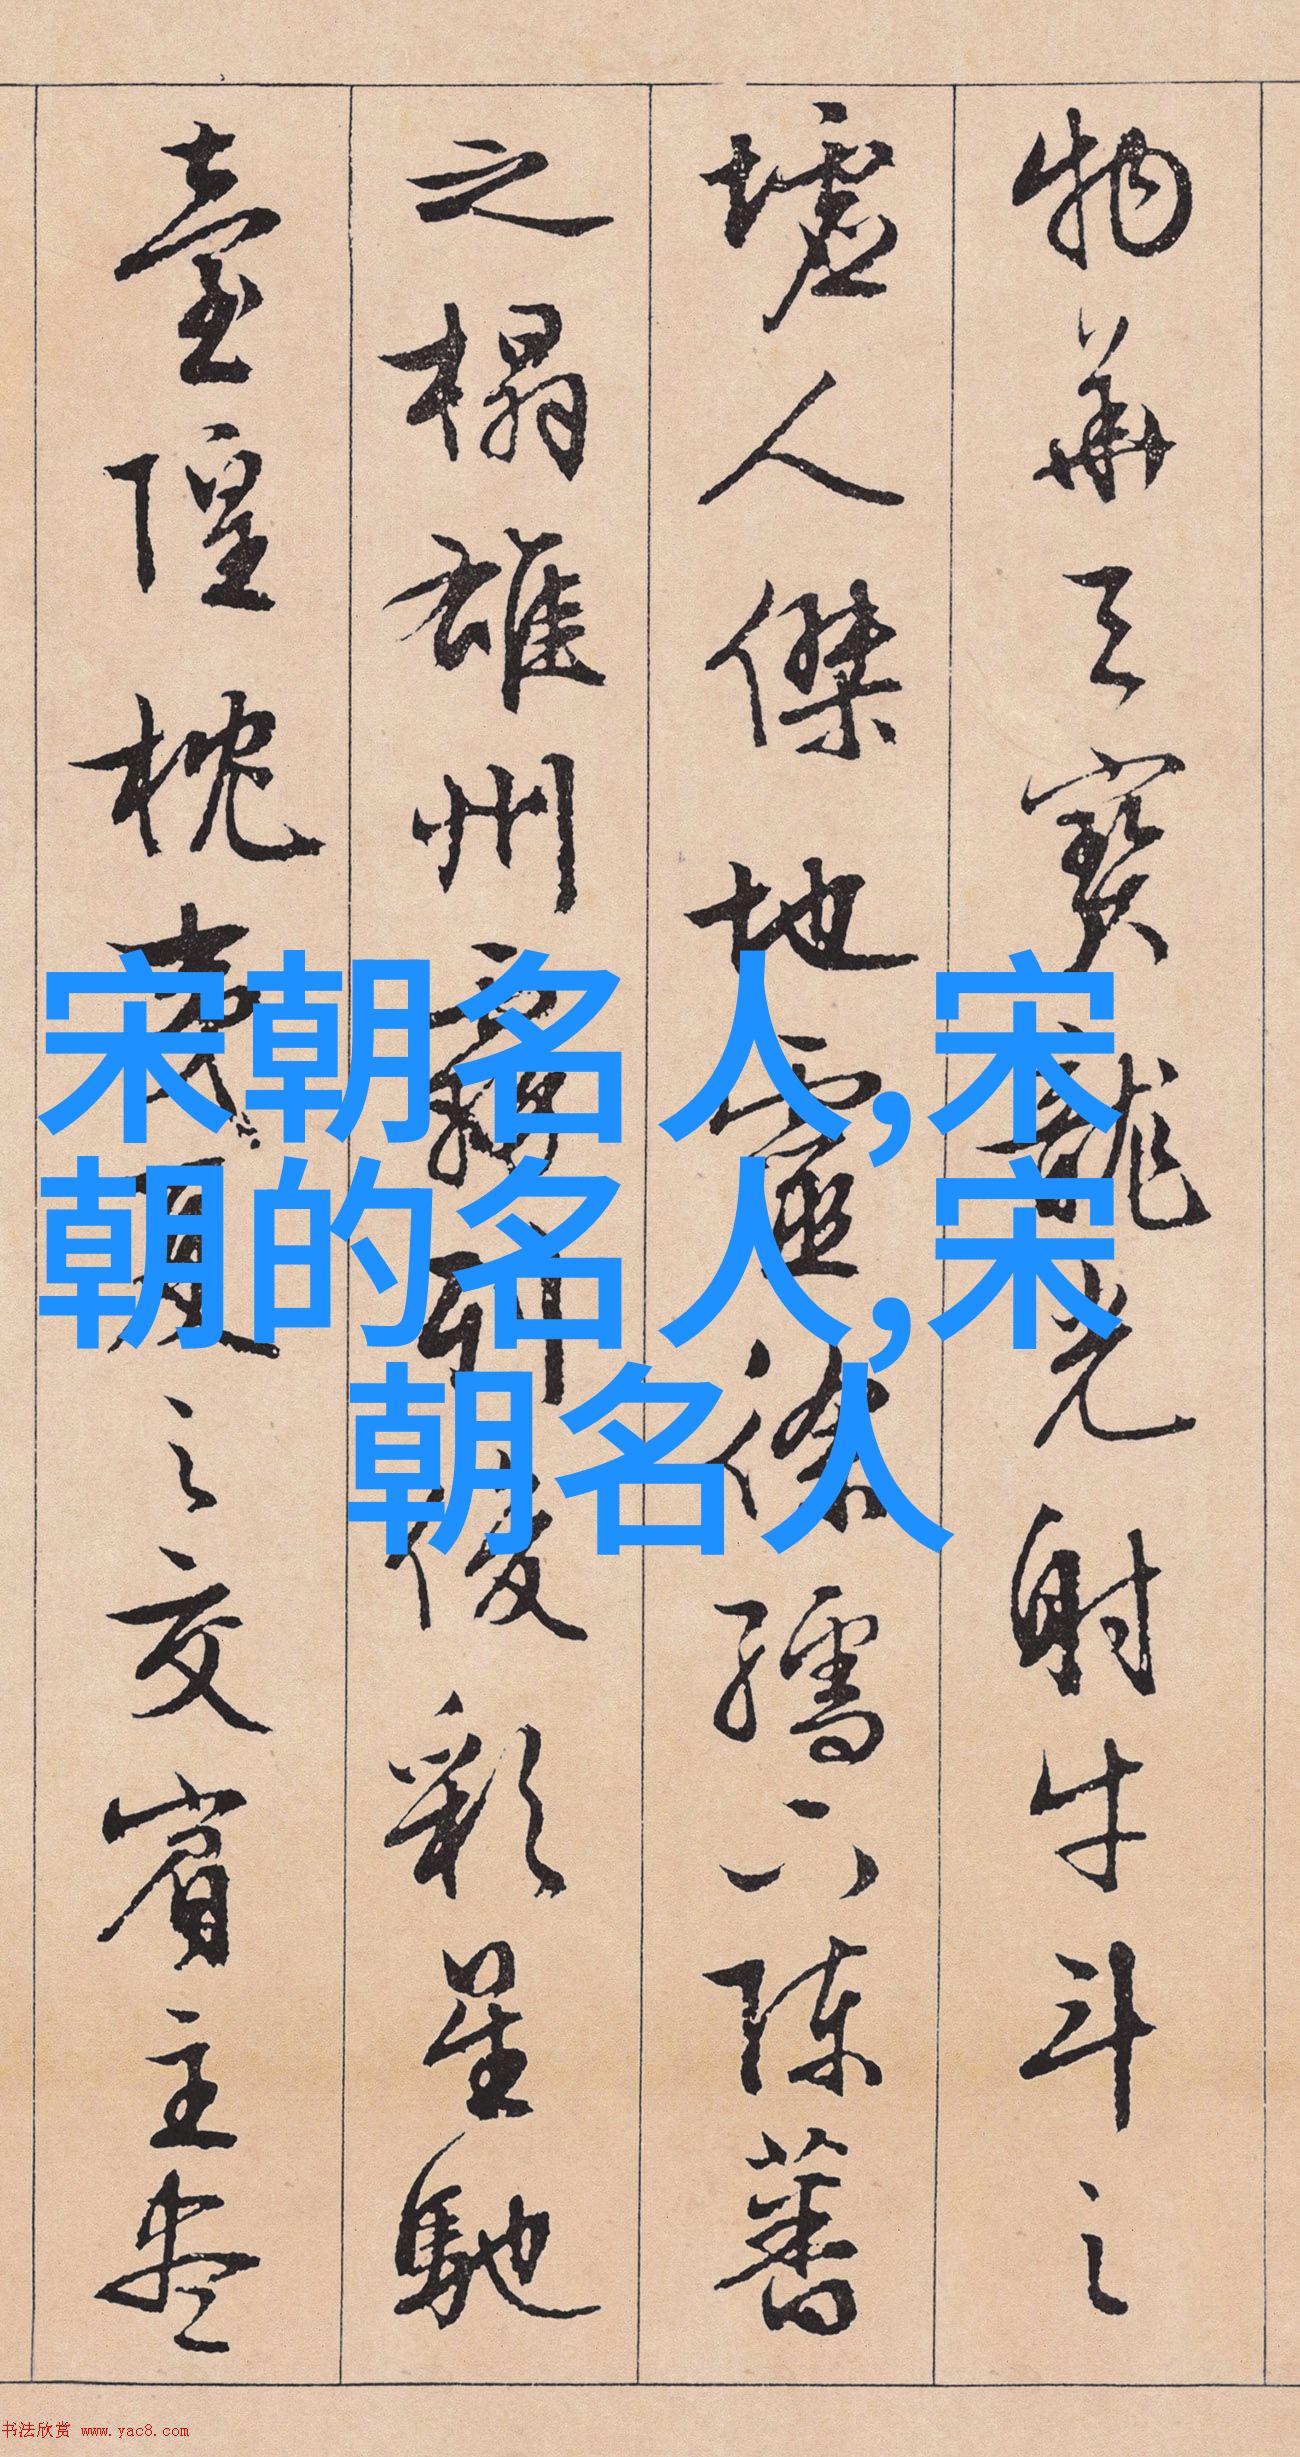 物華天寶龍光射牛斗之
墟人傑地靈徐孺下陳蕃
之榻雄州霧列俊彩星馳
臺隍枕夷夏之交賓主盡
宋朝名人,宋
朝的名人,宋
朝名人
书法欣赏 www.yac8.com